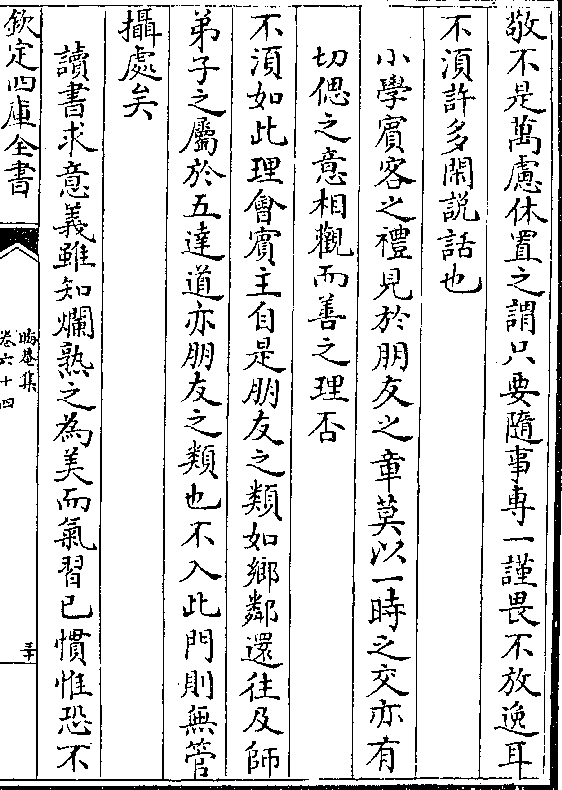 敬不是萬慮休置之謂只要隨事専一謹畏不放逸耳
不湏許多閑説話也
小學賓客之禮見於朋友之章莫以一時之交亦有
切偲之意相觀而善之理否
不湏如此理會賓主自是朋友之類如鄉鄰還往及師
弟子之屬於五達道亦朋友之類也不入此門則無管
攝處矣
讀書求意義雖知爛熟之為美而氣習已慣惟恐不
欽定四庫全書
晦菴集
卷六十四
三十